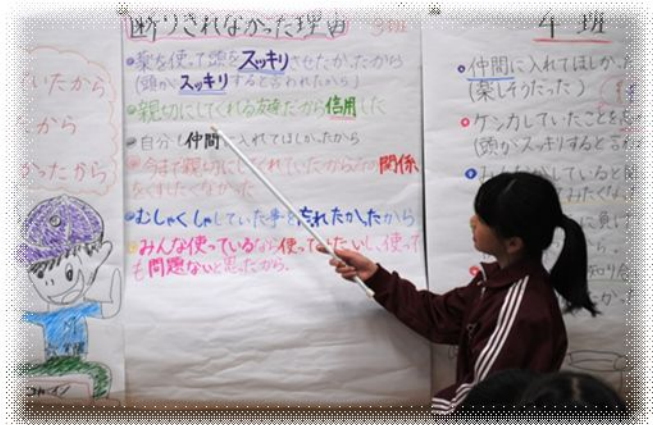 いたから
たから
かったから
断りきれなかった理由 3班
薬を使って頭をスッキリさせたかったから
(頭がスッキリすると言われたから)
親切にしてくれる友達だから信用した
自分も仲間に入れてほしかったから
今まで親切にしてくれていたからその関係
をくずしたくなかった
むしゃくしゃしていた事を忘れたかったから
みんな使っているなら使ってみたいし、使って
も問題ないと思ったから。
4班
仲間に入れてほしか
(楽しそうだった)
ケンカしていたことを忘
(頭がスッキリすると言わ
みんな しているると
に負け
から。
知り合